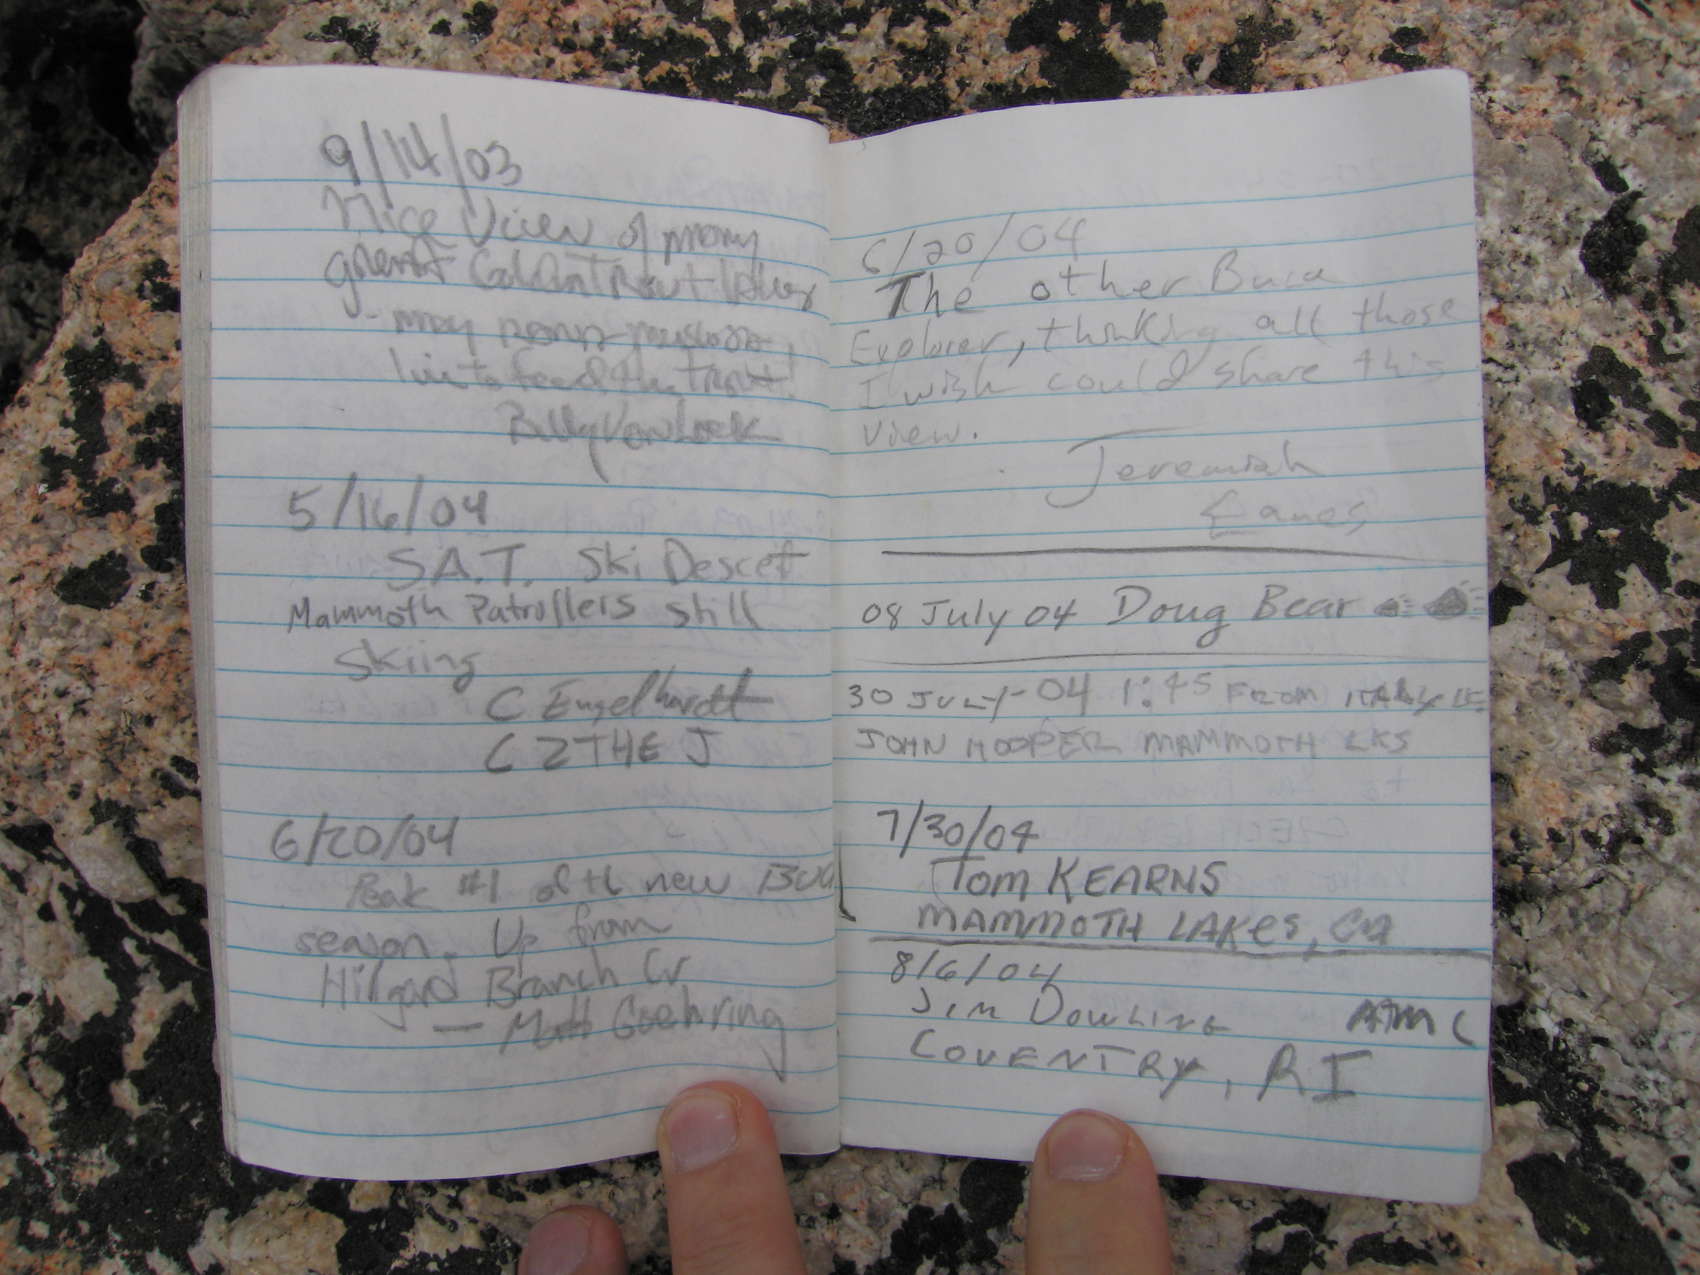 9/14/03
Nice View of many
great Golden Trout lakes
- may
live to feed the Trout.
Billy Van Loek
5/16/04
S.A.T. Ski Descet
Mammoth Patrollers still
skiing
C Engelhardt
C 2 THE J
6/20/04
Peak #1 of th new BUG
season. Up from
Hilgard Branch Cr
— Matt Goehring
6/20/04
The other
Explorer, thinking all those
I wish could share this
view.
Jeremiah
Eanes
08 July 04 Doug Bear
30 JULY-04 1:45 FROM ITALY LK
JOHN HOOPER MAMMOTH LKS
7/30/04
TOM KEARNS
MAMMOTH LAKES, CA
8/6/04
JIM DOWLING AMC
COVENTRY, RI